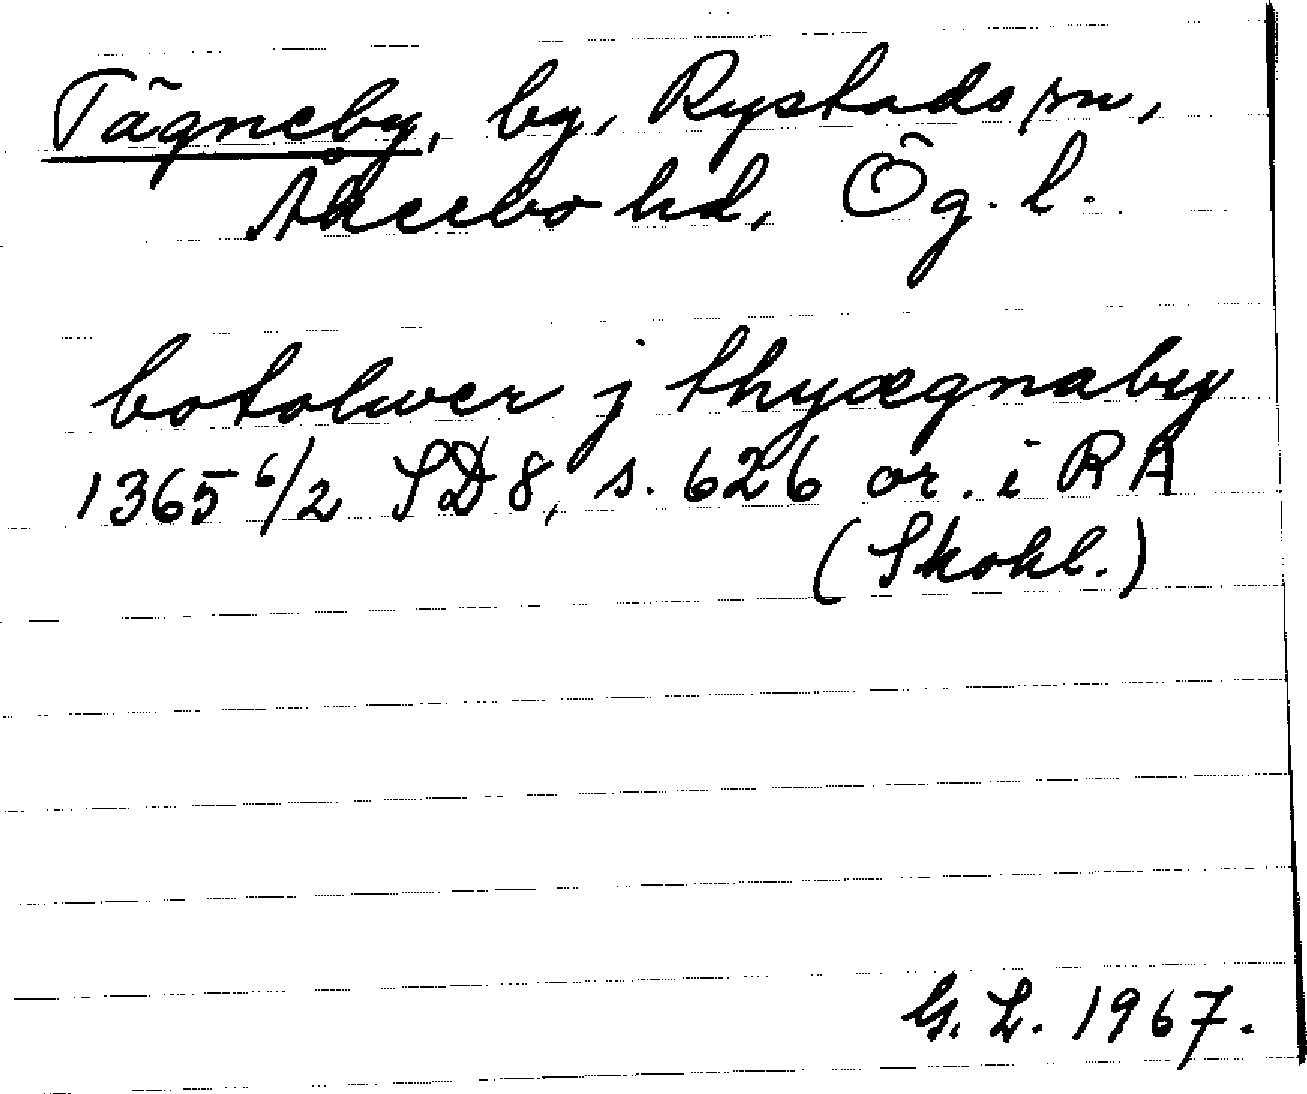 Tägneby, by, Rystads sn,
Åkerbo hd, Ög. l.
botolwer j thyægnaby
1365 6/2 SD 8, s. 626 or. i RA
(Skokl.)
G. L. 1967.